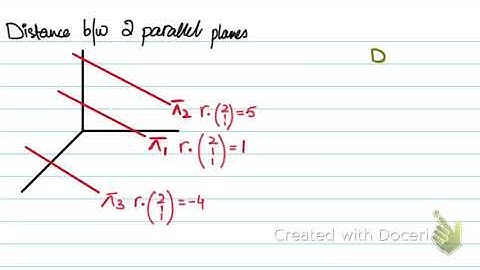 Distance b/w 2 parallel planes
D
π2 r.(2 1 1)=5
π1 r.(2 1 1)=1
π3 r.(2 1 1)=-4
Created with Doceri